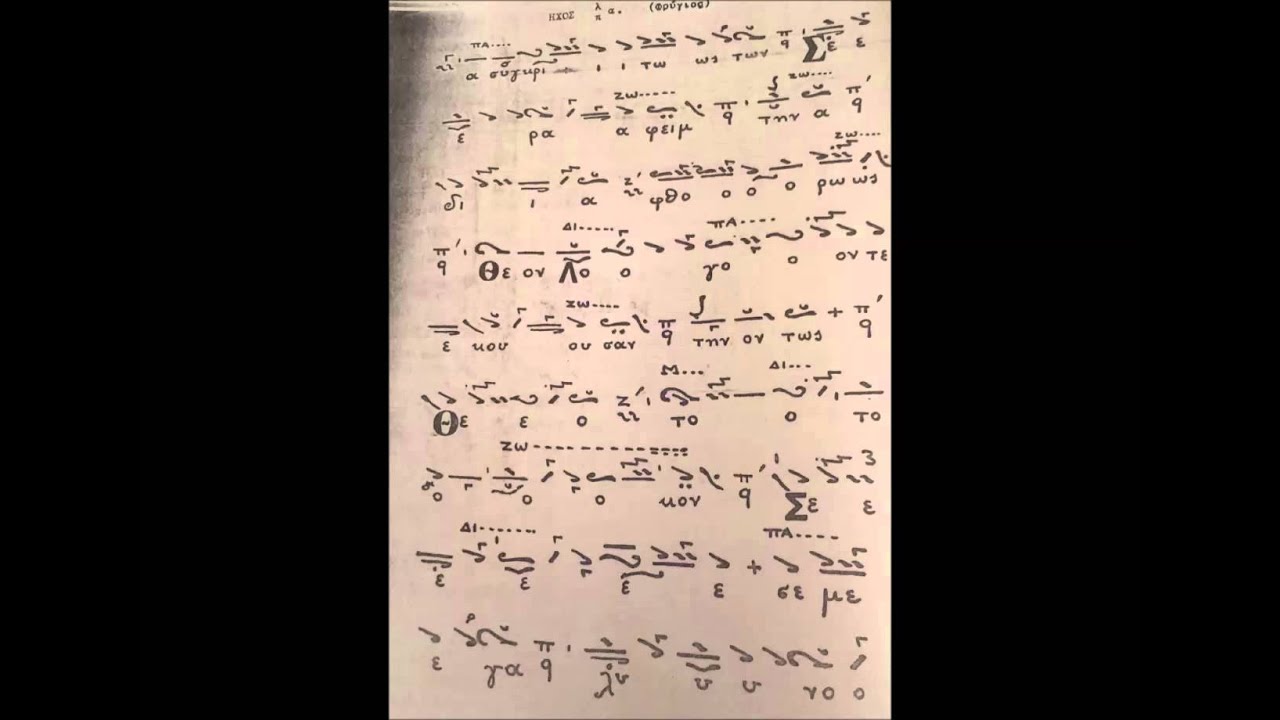 ΗΧΟΣ λ π α. (Φρύγιος)
ΠΑ....
α συγκρι ι ι τω ως των π q Σε ε
ζω.....
ζω....
ε ρα α φειμ π q την α π q
ζω....
δι ι α ζ φθο ο ο ο ρω ως
ΔΙ.....
ΠΑ....
π q Θε ον Λο ο γο ο ον τε
ζω....
ε κου ου σαν π q την ον τως + π q
Μ...
ΔΙ...
Θε ε ο ζ το ο το
ζω
ο ο ο κον π q Σε ε
ΔΙ.......
ΠΑ.....
ε ε ε ε + σε με
ε γα π q λυ υ υ νο ο